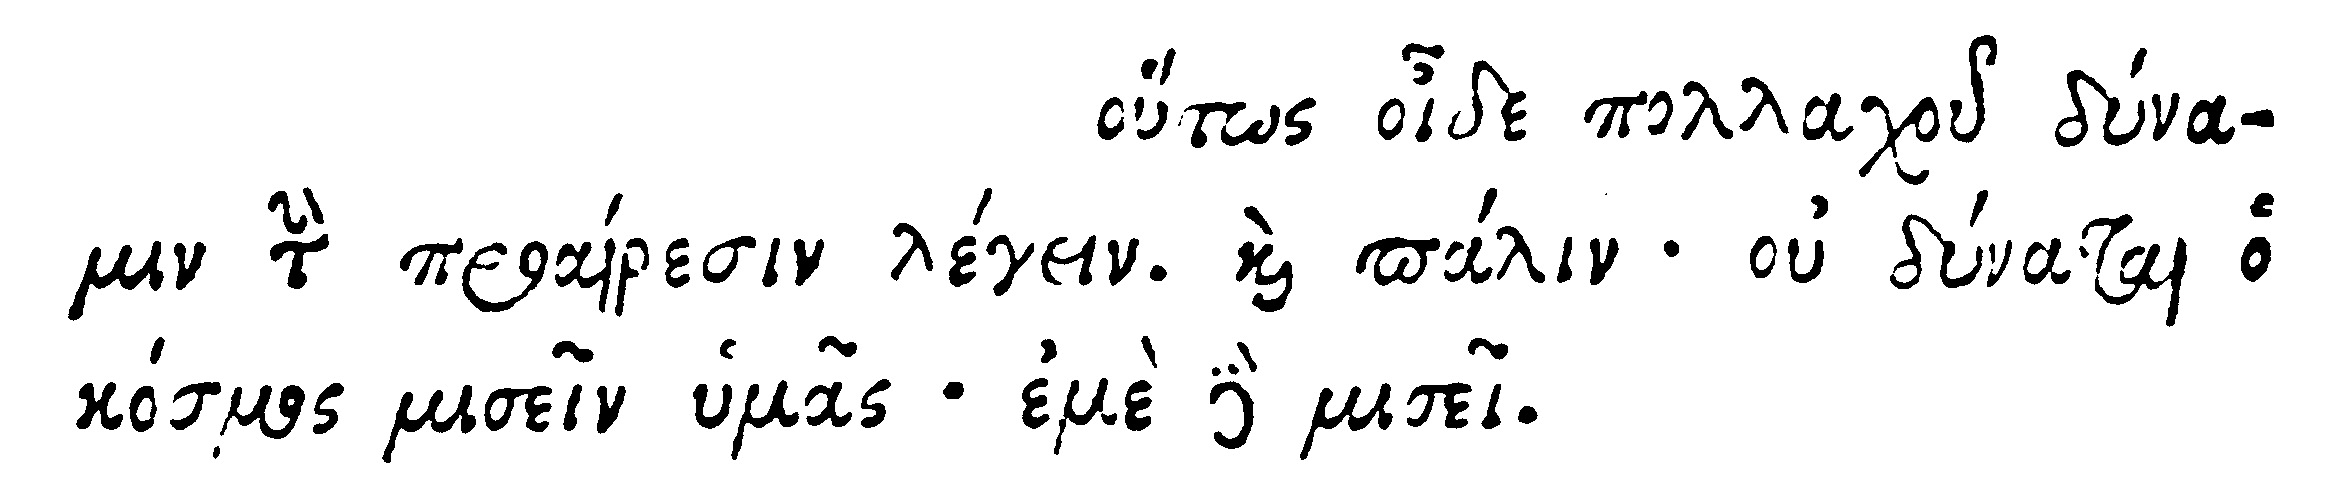 οὕτως οἶδε πολλαχοῦ δύνα-
μιν τὴν προαίρεσιν λέγειν. καὶ πάλιν · οὐ δύναται ὁ
κόσμος μισεῖν ὑμᾶς · ἐμὲ δὲ μισεῖ.